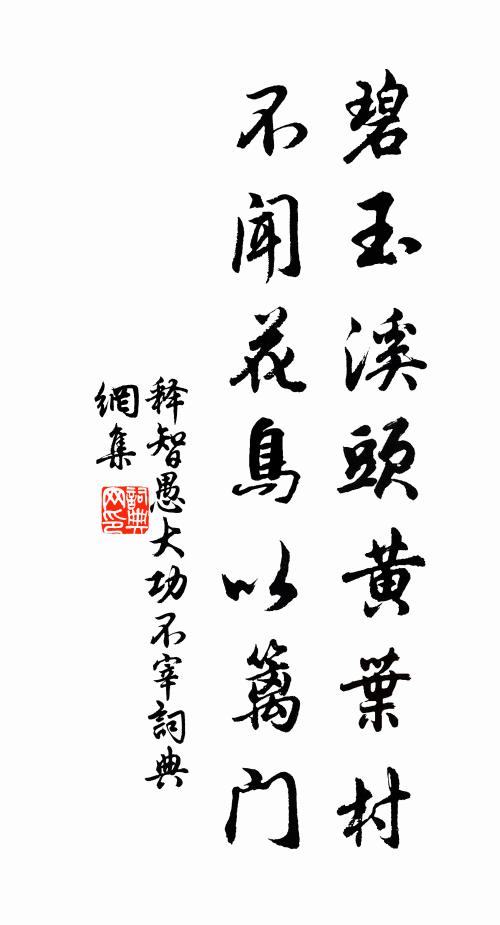 碧玉溪頭黄葉村
不闻花鳥以籬门
释智愚大功不宰詞典
網集
詞典
网印